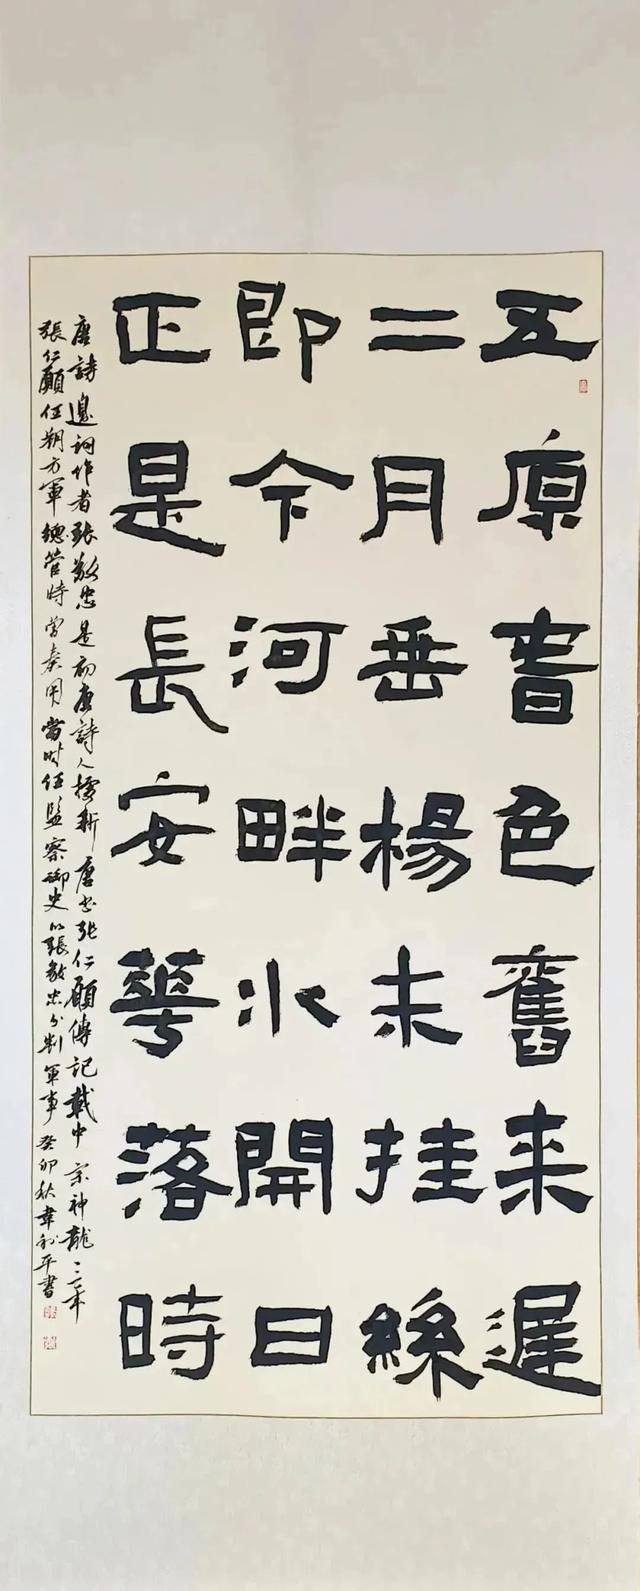 五原春色舊来遲
二月垂楊未挂絲
即今河畔冰開日
正是長安華落時
唐詩邊詞作者張敬忠是初唐詩人據新唐書張仁願傳記載中宗神龍三年
張仁願任朔方軍總管時曾奏用當時任監察御史的張敬忠分判軍事癸卯秋韋平書